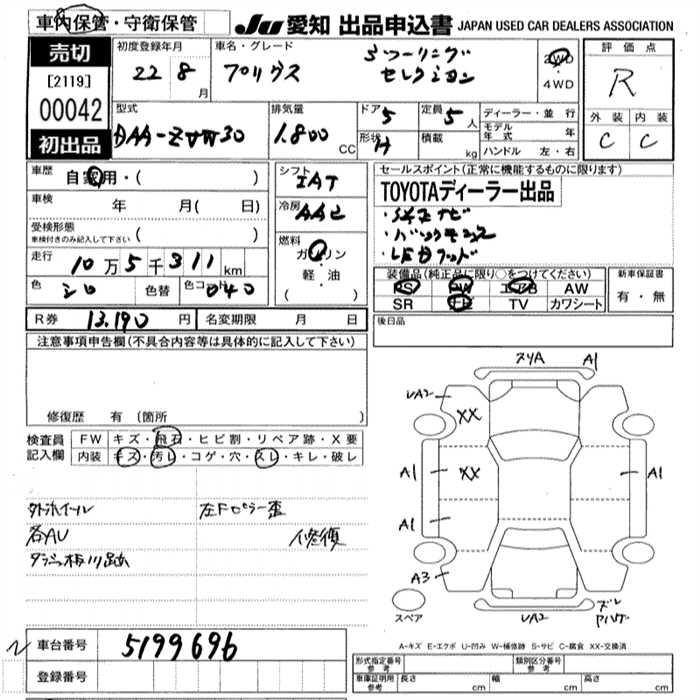 車内保管・守衛保管 JU 愛知 出品申込書 JAPAN USED CAR DEALERS ASSOCIATION
売切
[2119]
00042
初出品
初度登録年月 22 8 月
車名・グレード プリウス Sツーリング
セレクション
2WD
・
4WD
評価点
R
外装 内装
C C
型式 DAA-ZVW30
排気量 1.800 CC
ドア 5
形状 H
定員 5 人
積載 kg
ディーラー・並行
モデル年式 年
ハンドル 左・右
車歴 自家用・( )
車検 年 月( 日)
受検形態
車検付きのみ記入して下さい ( )
走行 10万5千311km
色 シロ 色替 色コード 040
シフト IAT
冷房 AAC
燃料
ガソリン
・
軽・油
( )
セールスポイント(正常に機能するものに限ります)
TOYOTAディーラー出品
・純正ナビ
・バックモニター
・LEDヘッド
装備品(純正品に限り○をつけてください)
PS PW エアB AW
SR ナビ TV カワシート
新車保証書
有・無
R券 13.190 円 名変期限 月 日
後日品
注意事項申告欄(不具合内容等は具体的に記入して下さい)
修復歴 有 (箇所 )
検査員
記入欄
FW キズ・飛石・ヒビ割・リペア跡・X要
内装 キズ・汚レ・コゲ・穴・スレ・キレ・破レ
外ホイール 左Fピラー歪
各AU 修復
A1
UA2
XX
A1
XX
A1
A1
A3
スペア
UA2
ズレ
A-キズ E-エクボ U-凹み W-補修跡 S-サビ C-腐食 XX-交換済
車台番号 5199696
登録番号
形式指定番号
参考
類別区分番号
参考
車庫証明用
参考
長さ cm 幅 cm 高さ cm